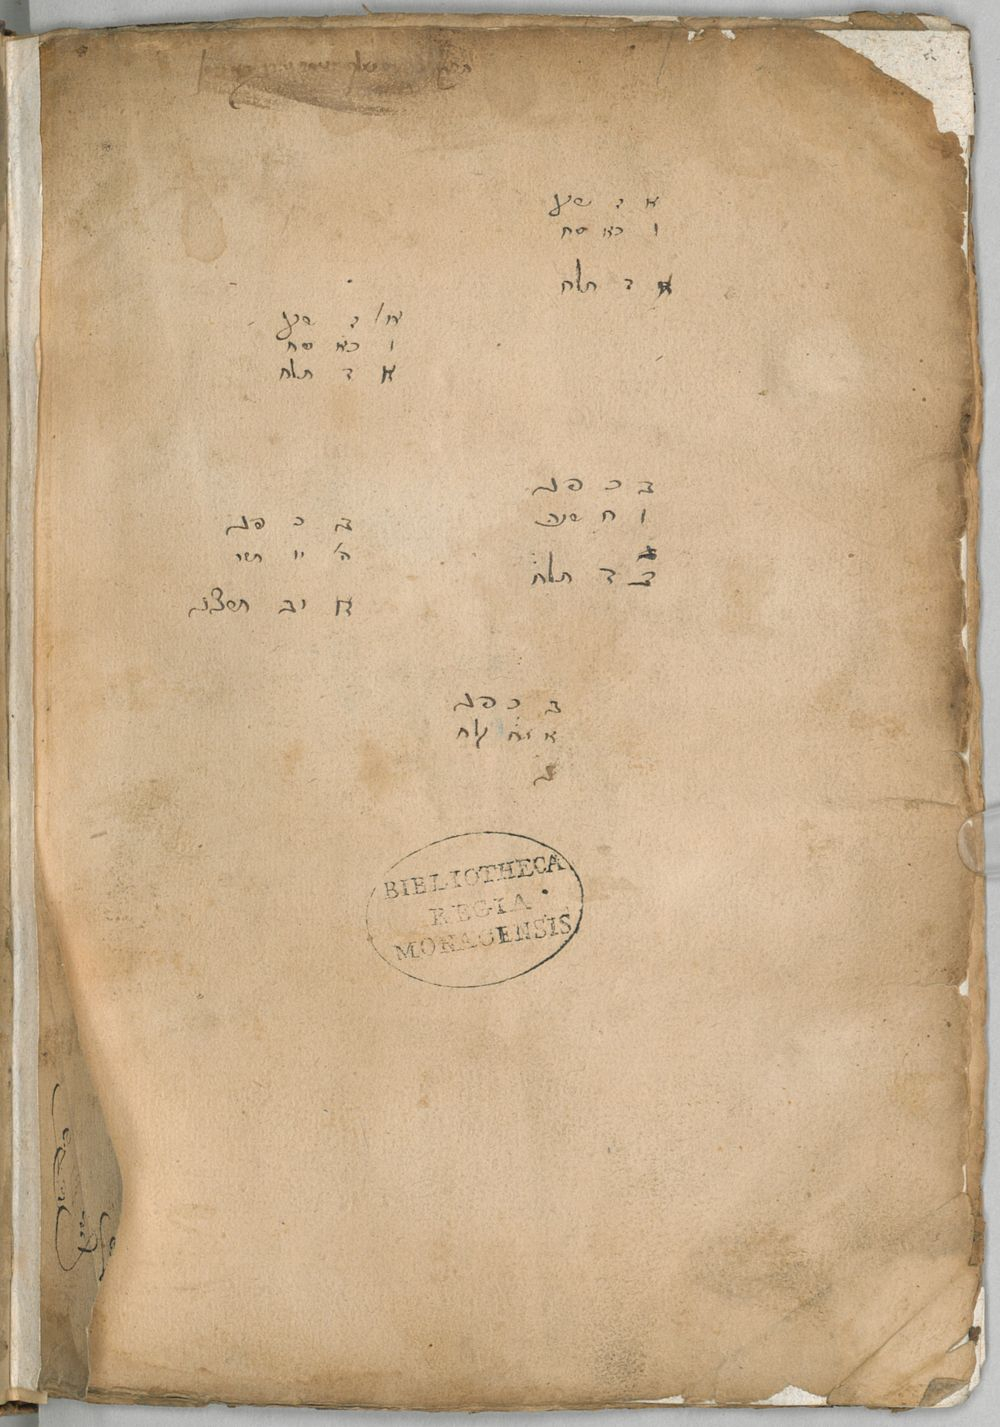 א ז שע
ו כא סח
א ד תלח
א' ז שע
ו כא סח
א ד תלח
ב כ פג
ו ח שנה
ב ד תלח
ב כ פג
ה' יו תשי
א יב תשצג
ב כ פג
א יח קלח
ב
BIBLIOTHECA
REGIA
MONACENSIS